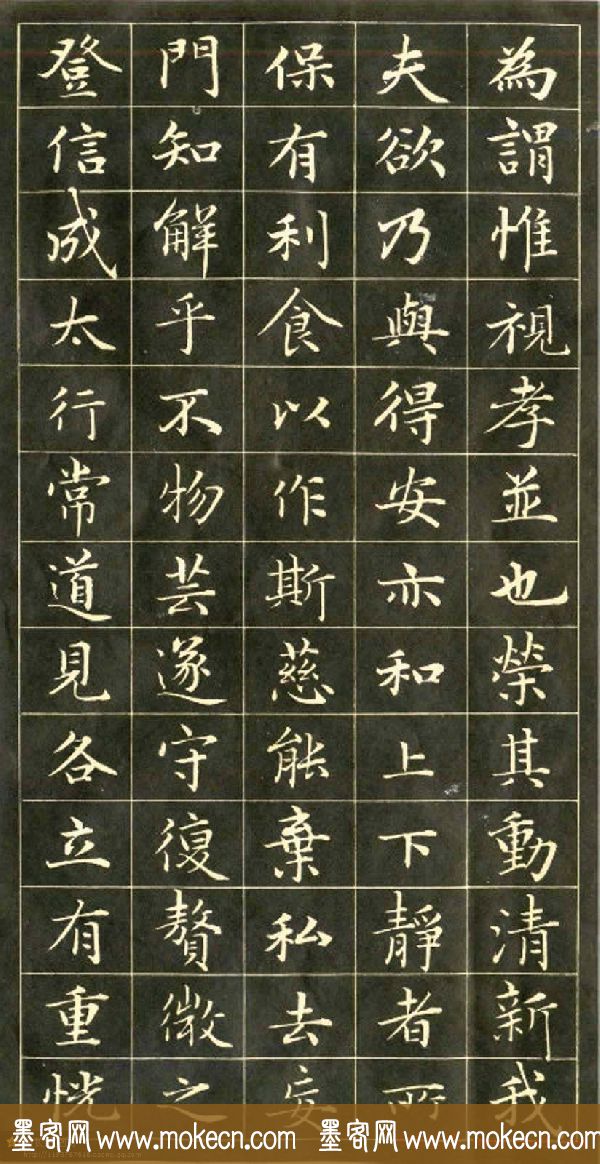 為謂惟視孝並也榮其動清新我
夫欲乃與得安亦和上下靜者所
保有利食以作斯慈能棄私去妄
門知解乎不物芸遂守復贅微之
登信成太行常道見各立有重恍
墨客网 www.mokecn.com 墨客网 www.mokecn.com